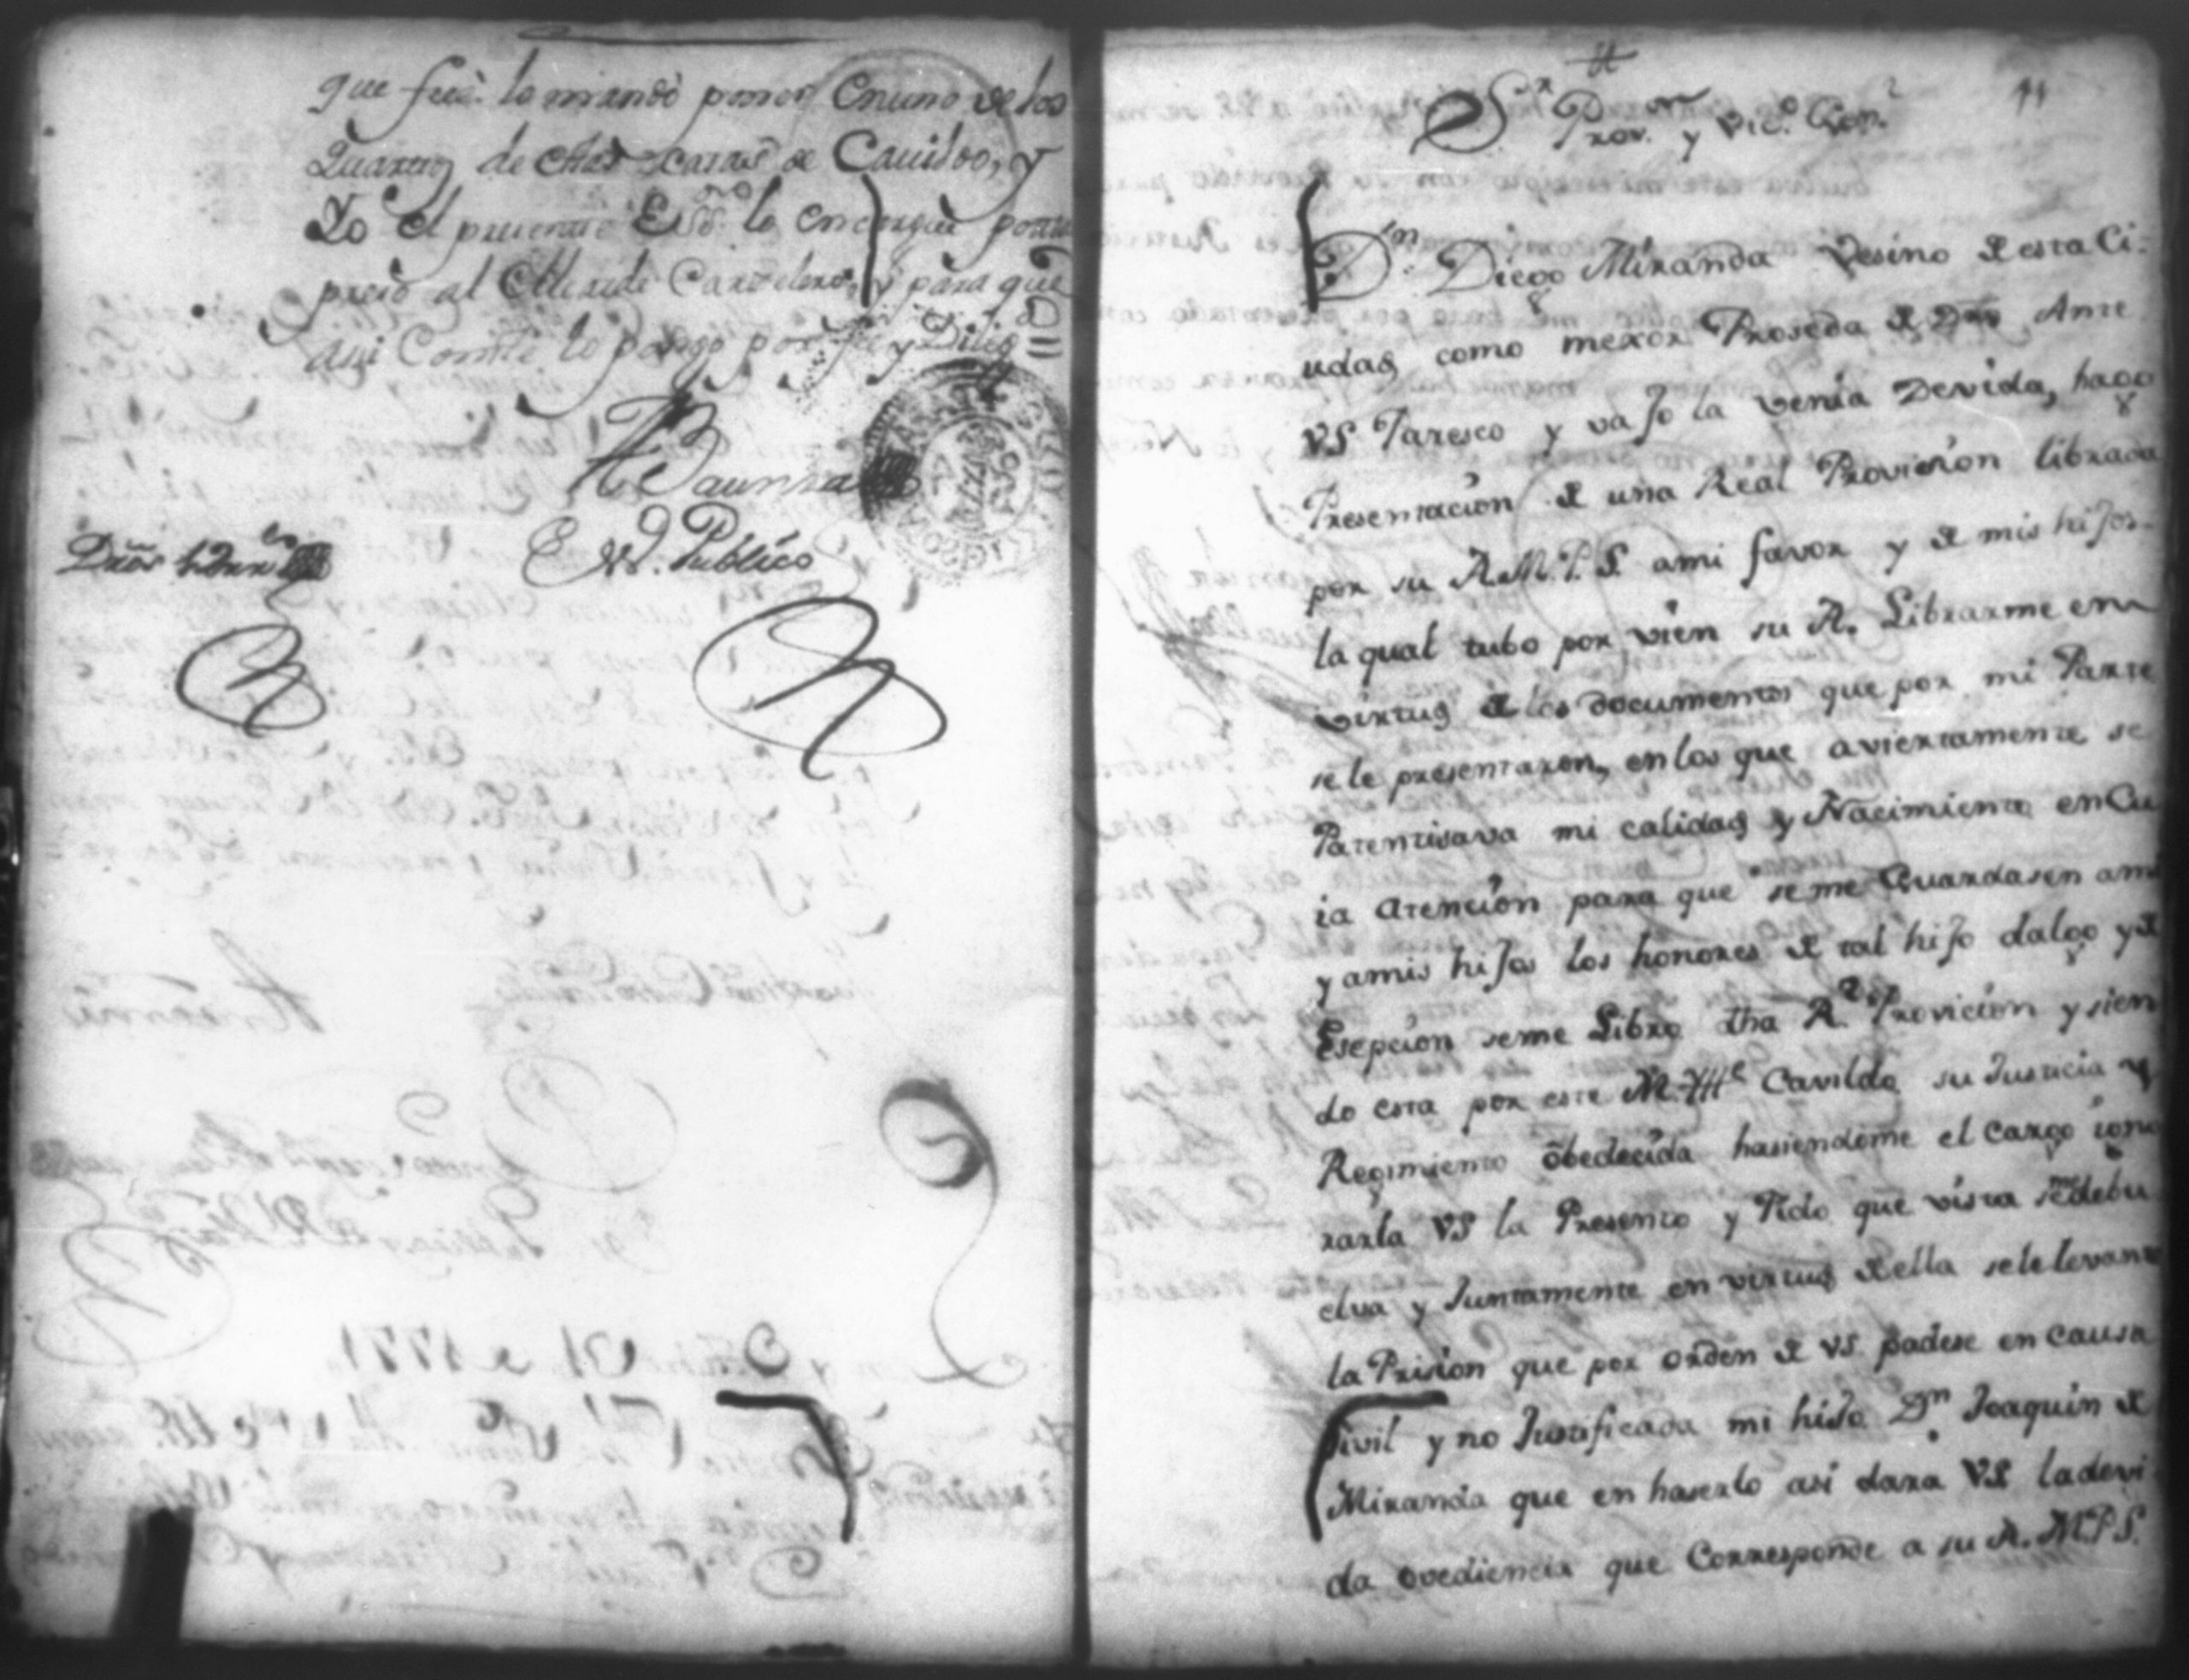 que fué. lo mandó poner en uno de los
Quartos de estas casas de Cauildo, y
Yo el presente Essno lo encargué por
preso al Alcaide Carzelero, y para que
asi Conste lo pongo por fee y Dilig.a
Baunza
Ess.no Publico
Dros
11
Sr Provor y Vico Genl
Dn. Diego Miranda Vesino de esta Ci-
udad como mexor Proseda de Dro Ante
VS Paresco y vajo la venia Devida, hago
Presentacion de una Real Provision librada
por su A.M.P.S. ami favor y de mis hijos
la qual tubo por vien su A. Librarme en
virtud de los documentos que por mi Parte
se le presentaron, en los que aviertamente se
Patentisava mi calidad y Nacimiento en Cu
ia atencion para que se me Guardasen ami
y amis hijos los honores de tal hijo dalgo y de
Esepcion seme Libro dha Rl Provicion y sien
do esta por este M. Ille Cavildo su Justicia y
Regimiento obedecida hasiendome el cargo
rarla VS la Presento y Pido que vista se me debu
elva y Juntamente en virtud de ella se le levante
la Prision que por orden de VS. padese en causa
Sivil y no Justificada mi hijo Dn Joaquin de
Miranda que en haserlo asi dara VS la devi
da ovediencia que Corresponde a su A. M.P.S.